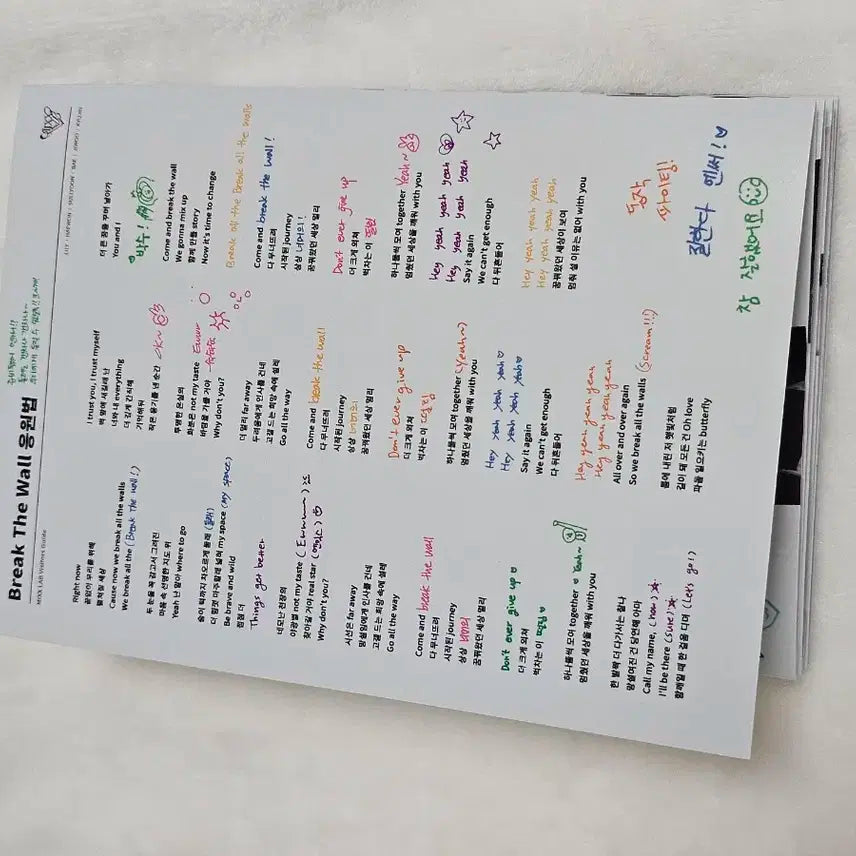 Break The Wall 응원법
MIXX LAB Wellness Guide
LILY | HAEWON | SULLYOON | BAE | JIWOO | KYUJIN
Right now
끝없이 우리를 위해
펼쳐질 세상
Cause now we break all the walls
We break all the (Break the wall!)
두 눈을 꼭 감고서 그려진
마음 속 선명한 지도 위
Yeah 난 알아 where to go
숨이 턱까지 차오르게 몰래 (몰래)
더 힘껏 마주할래 넓혀 my space (my space)
Be brave and wild
점점 더
Things got better
네모난 천장의
야광별 not my taste (Ewwww)
찾아갈 거야 real star
Why don't you?
시선은 far away
망설임에게 인사를 건네
고갤 드는 희망 속에 설레
Go all the way
Come and break the wall
다 무너뜨려
시작된 journey
상상 너머의
꿈꿔왔던 세상 멀리
Don't ever give up
더 크게 외쳐
벅차는 이 떨림
하나둘씩 모여 together Yeah~
멈췄던 세상을 깨워 with you
한 발짝 더 다가서는 찰나
망설여진 건 당연해 아마
Call my name, (how?)
I'll be there (sure!)
함께일 때 한 걸음 디뎌 (Let's go!)
I trust you, I trust myself
벽 앞에 세길래 난
너와 내 everything
더 깊게 간직해
기억해둬
작은 용기를 낸 순간 OK~
투명한 온실의
화분은 not my taste Ewww
바람을 가를 거야
Why don't you?
더 멀리 far away
두려움에게 인사를 건네
고갤 드는 희망 속에 설레
Go all the way
Come and break the wall
다 무너뜨려
시작된 journey
상상 너머의
꿈꿔왔던 세상 멀리
Don't ever give up
더 크게 외쳐
벅차는 이 떨림
하나둘씩 모여 together (Yeah~)
멈췄던 세상을 깨워 with you
Hey yeah yeah yeah
Hey yeah yeah yeah
Say it again
We can't get enough
다 뒤흔들어
Hey yeah yeah yeah
Hey yeah yeah yeah
All over and over again
So we break all the walls (Scream!!!)
몸에 내린 저 햇빛처럼
깊이 돼 모든 건 Oh love
파장 일으키는 butterfly
더 큰 꿈을 꾸며 날아가
You and I
박수!
Come and break the wall
We gonna mix up
함께 만들 story
Now it's time to change
Break all the Break all the walls
Come and break the wall!
다 무너뜨려
시작된 journey
상상 너머의!
꿈꿔왔던 세상 멀리
Don't ever give up
더 크게 외쳐
벅차는 이 떨림
하나둘씩 모여 together Yeah~
멈췄던 세상을 깨워 with you
Hey yeah yeah yeah yeah
Hey yeah yeah yeah yeah
Say it again
We can't get enough
다 뒤흔들어
Hey yeah yeah yeah
Hey yeah yeah yeah
꿈꿔왔던 세상이 보여
멈춰 설 이유는 없어 with you
동작
파이팅!
잘한다 엔써!
참 잘했어요